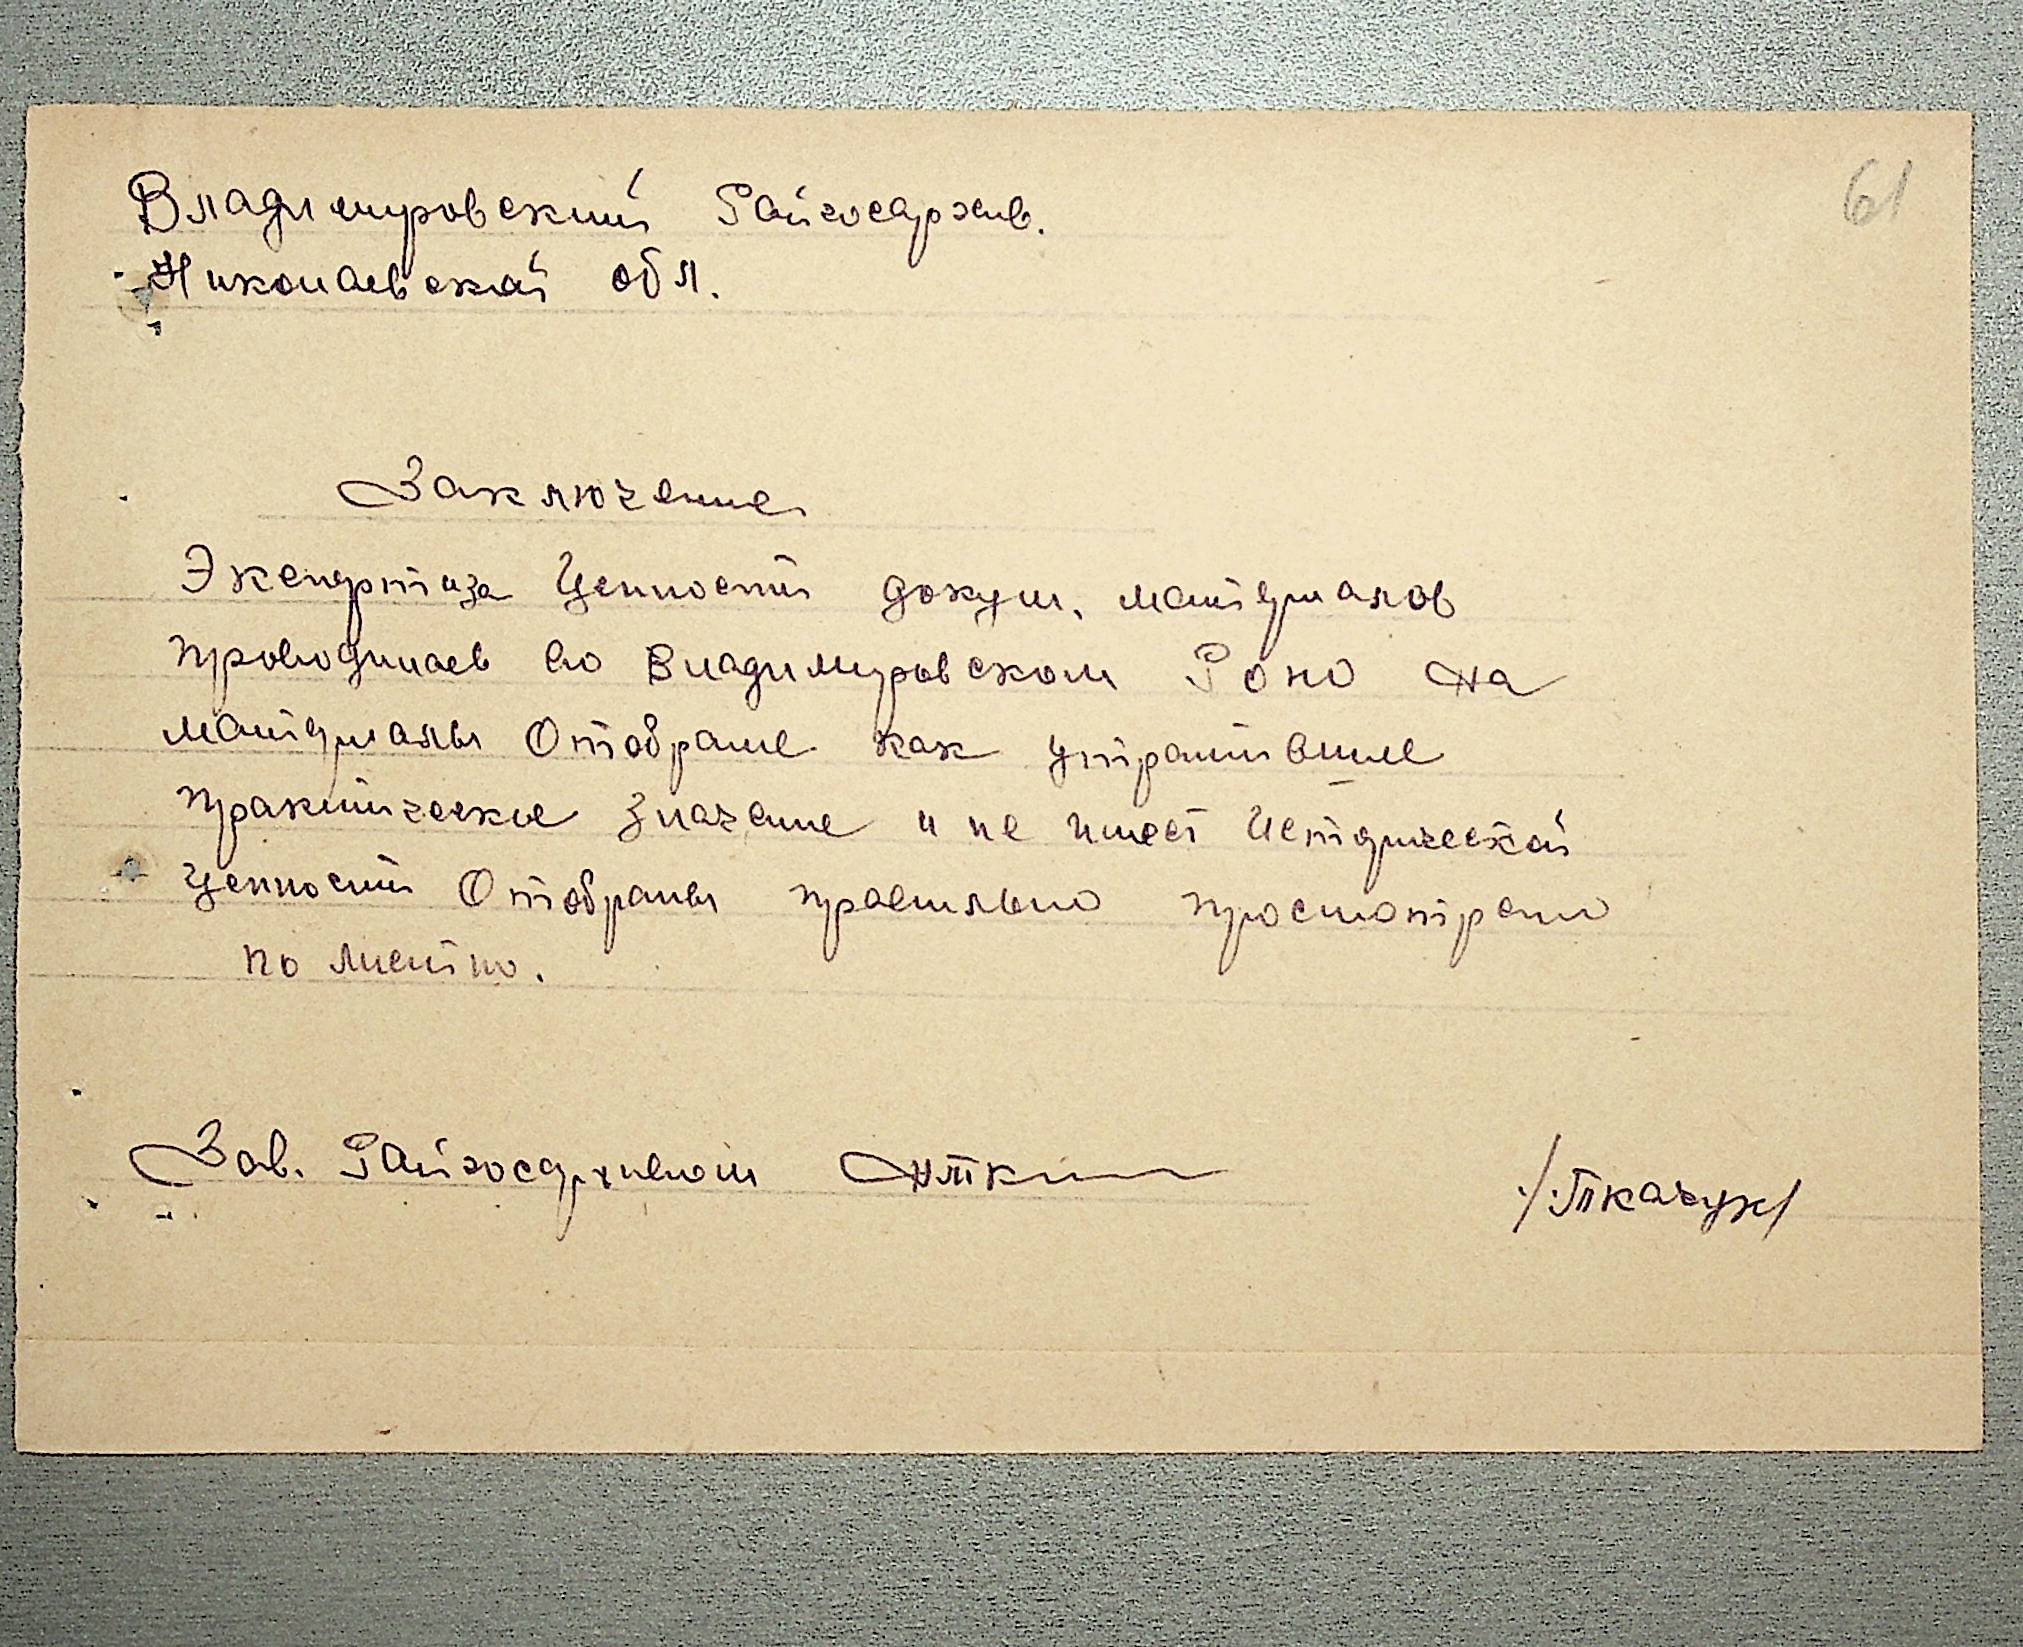 61
Владимировский Райгосархив.
Николаевской обл.
Заключение
Экспертиза Ценности докум. материалов
проводилась во Владимировском Роно на
материалы Отобраные как утратившие
практическое значение и не имеет Исторической
ценности Отобраны правильно просмотрено
по листно.
Зав. Райгосархивом
/Ткачук/